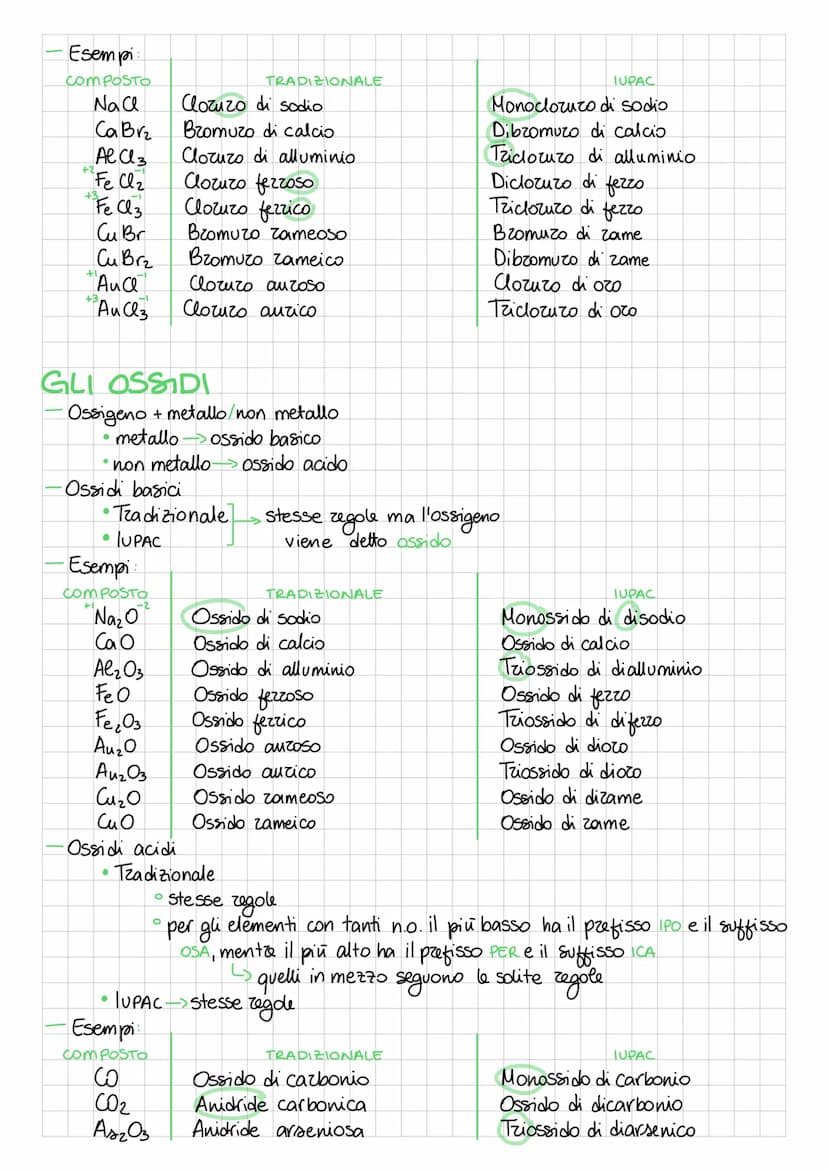 — Esempi:
COMPOSTO TRADIZIONALE IUPAC
NaCl Cloruro di sodio Monocloruro di sodio
CaBr₂ Bromuro di calcio Dibromuro di calcio
AlCl₃ Cloruro di alluminio Tricloruro di alluminio
+2 FeCl₂ -1 Cloruro ferroso Dicloruro di ferro
+3 FeCl₃ -1 Cloruro ferrico Tricloruro di ferro
CuBr Bromuro rameoso Bromuro di rame
CuBr₂ Bromuro rameico Dibromuro di rame
+1 AuCl -1 Cloruro auroso Cloruro di oro
+3 AuCl₃ -1 Cloruro aurico Tricloruro di oro
GLI OSSIDI
— Ossigeno + metallo/non metallo
• metallo → ossido basico
• non metallo → ossido acido
— Ossidi basici
• Tradizionale → stesse regole ma l'ossigeno
• IUPAC viene detto ossido
— Esempi:
COMPOSTO TRADIZIONALE IUPAC
+1 Na₂O -2 Ossido di sodio Monossido di disodio
CaO Ossido di calcio Ossido di calcio
Al₂O₃ Ossido di alluminio Triossido di dialluminio
FeO Ossido ferroso Ossido di ferro
Fe₂O₃ Ossido ferrico Triossido di diferro
Au₂O Ossido auroso Ossido di dioro
Au₂O₃ Ossido aurico Triossido di dioro
Cu₂O Ossido rameoso Ossido di dirame
CuO Ossido rameico Ossido di rame
— Ossidi acidi
• Tradizionale
° stesse regole
° per gli elementi con tanti n.o. il più basso ha il prefisso IPO e il suffisso
OSA, mentre il più alto ha il prefisso PER e il suffisso ICA
↳ quelli in mezzo seguono le solite regole
• IUPAC → stesse regole
— Esempi:
COMPOSTO TRADIZIONALE IUPAC
CO Ossido di carbonio Monossido di carbonio
CO₂ Anidride carbonica Ossido di dicarbonio
As₂O₃ Anidride arseniosa Triossido di diarsenico